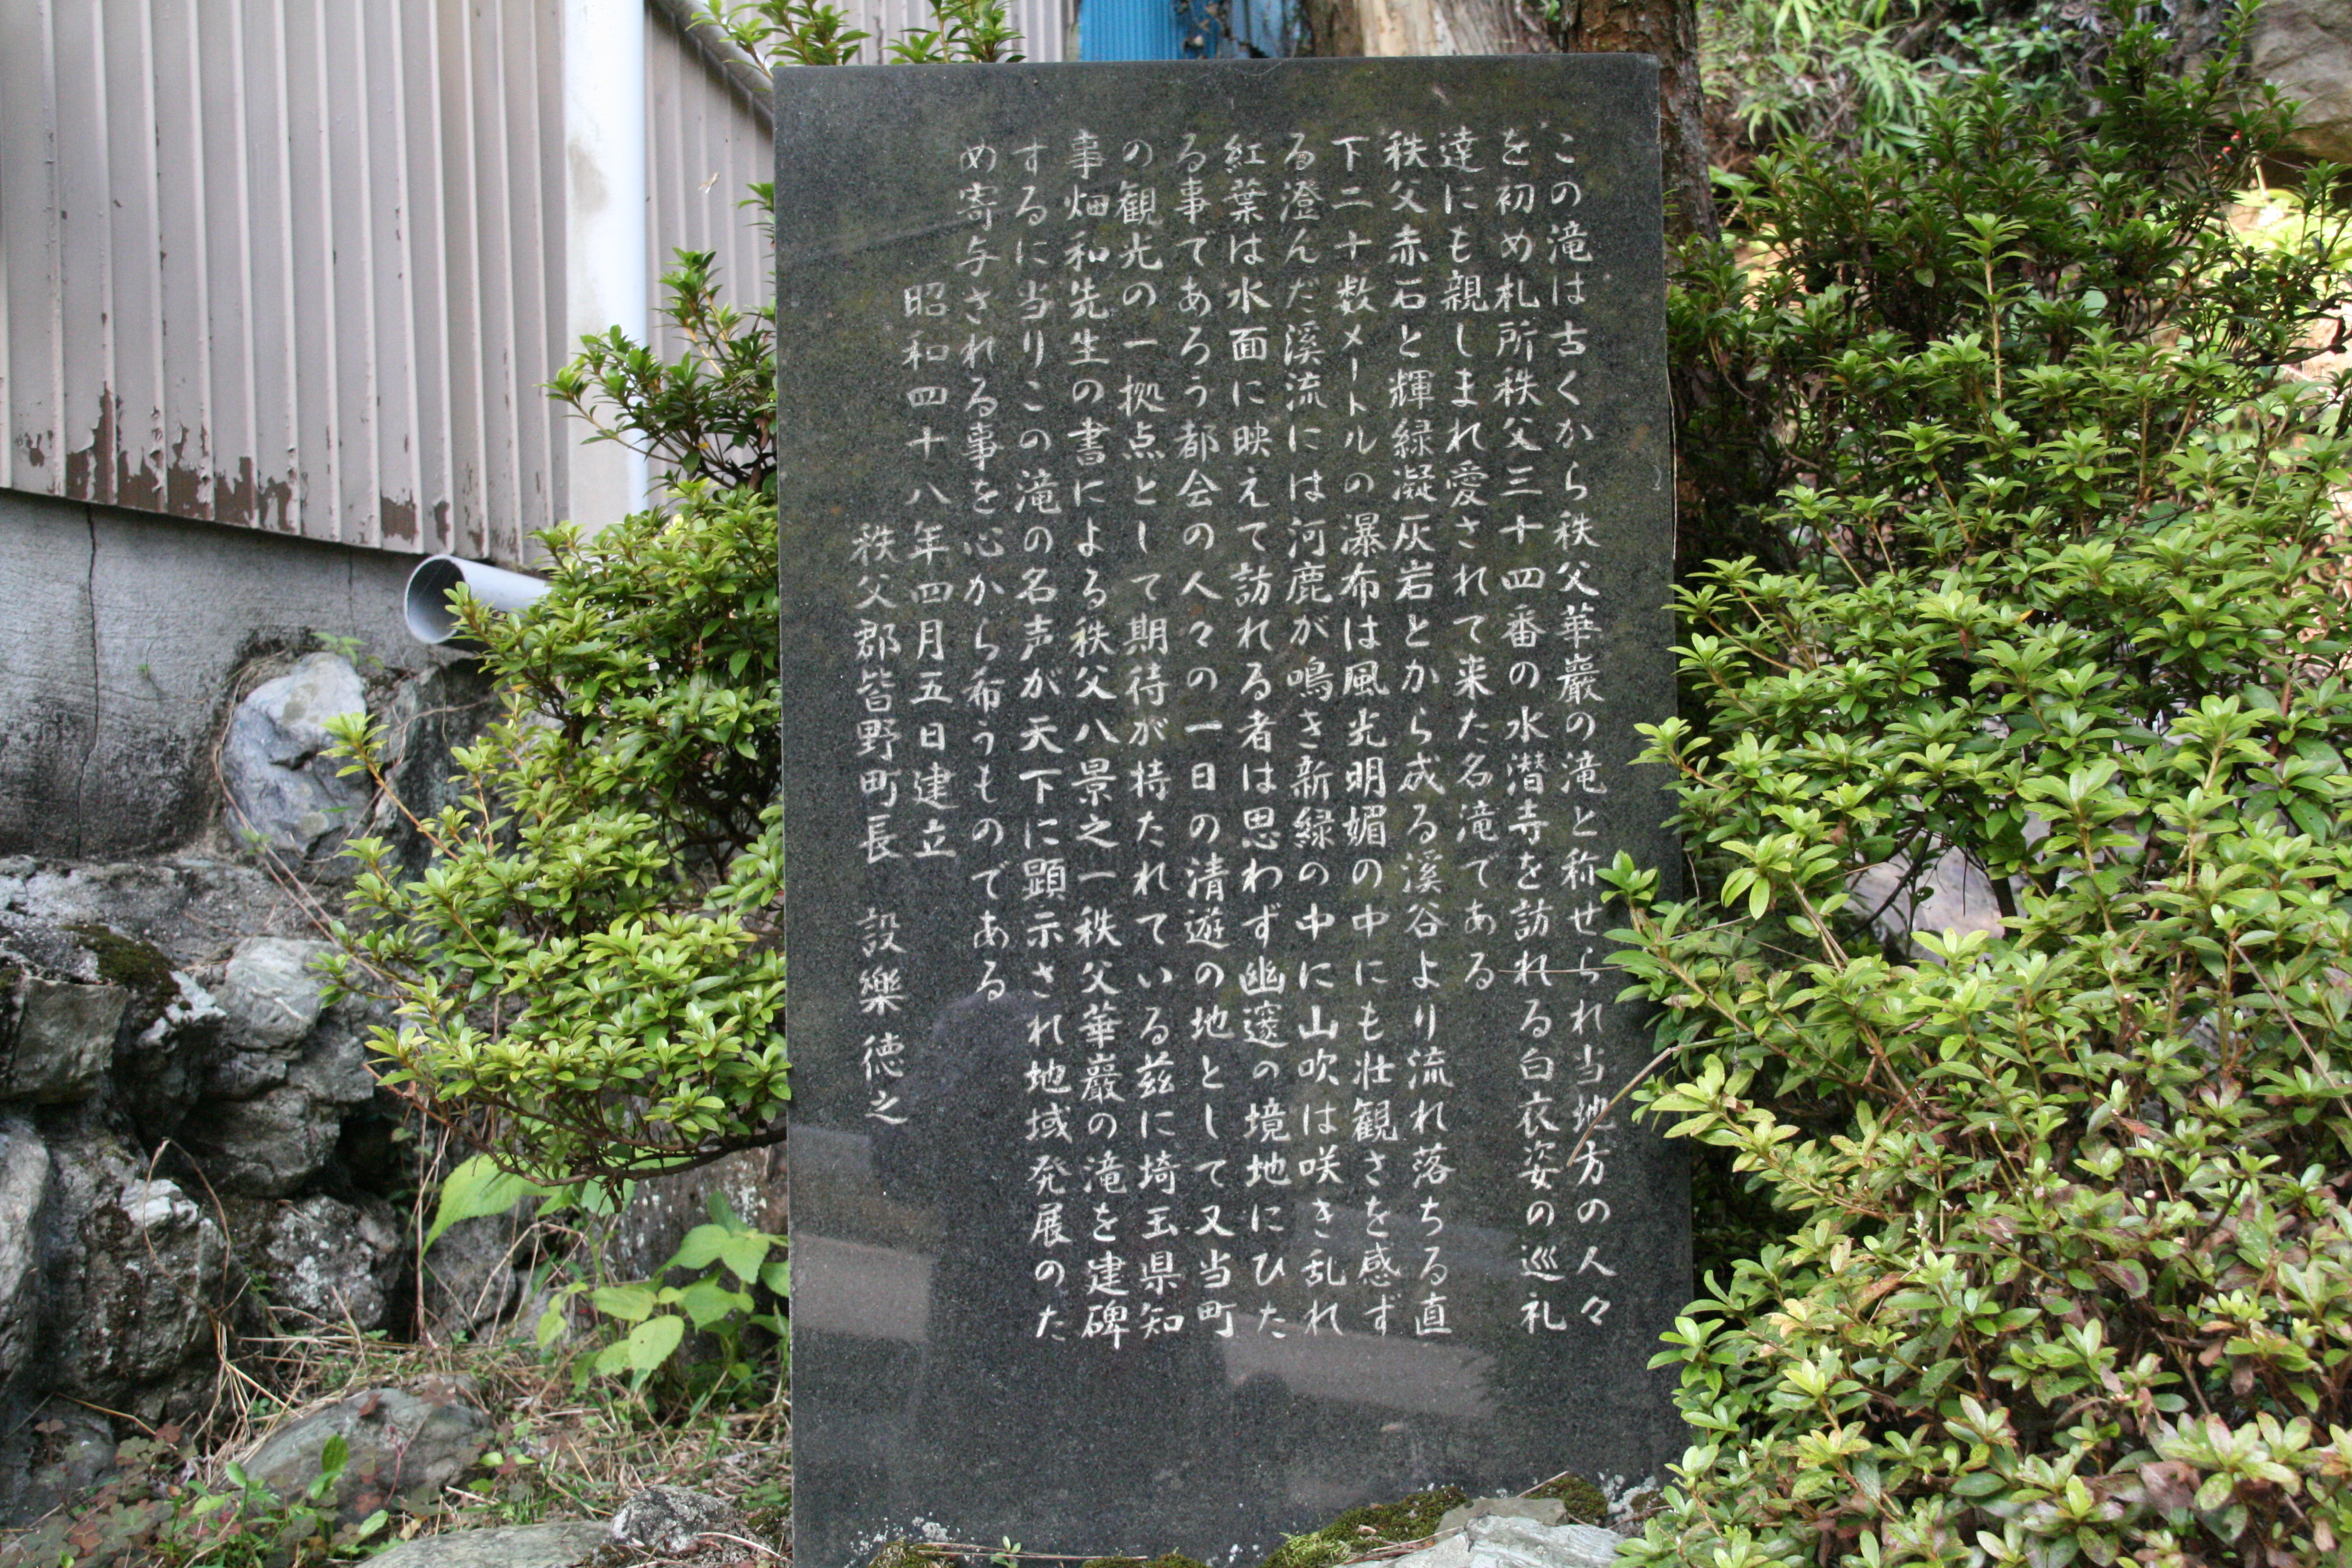 この滝は古くから秩父華巖の滝と称せられ当地方の人々
を初め札所秩父三十四番の水潜寺を訪れる白衣姿の巡礼
達にも親しまれ愛されて来た名滝である
秩父赤石と輝緑凝灰岩とから成る溪谷より流れ落ちる直
下二十数メートルの瀑布は風光明媚の中にも壮観さを感ず
る澄んだ溪流には河鹿が鳴き新緑の中に山吹は咲き乱れ
紅葉は水面に映えて訪れる者は思わず幽邃の境地にひた
る事であろう都会の人々の一日の清遊の地として又当町
の観光の一拠点として期待が持たれている茲に埼玉県知
事畑和先生の書による秩父八景之一秩父華巖の滝を建碑
するに当りこの滝の名声が天下に顕示され地域発展のた
め寄与される事を心から布うものである
昭和四十八年四月五日建立
秩父郡皆野町長　設樂徳之